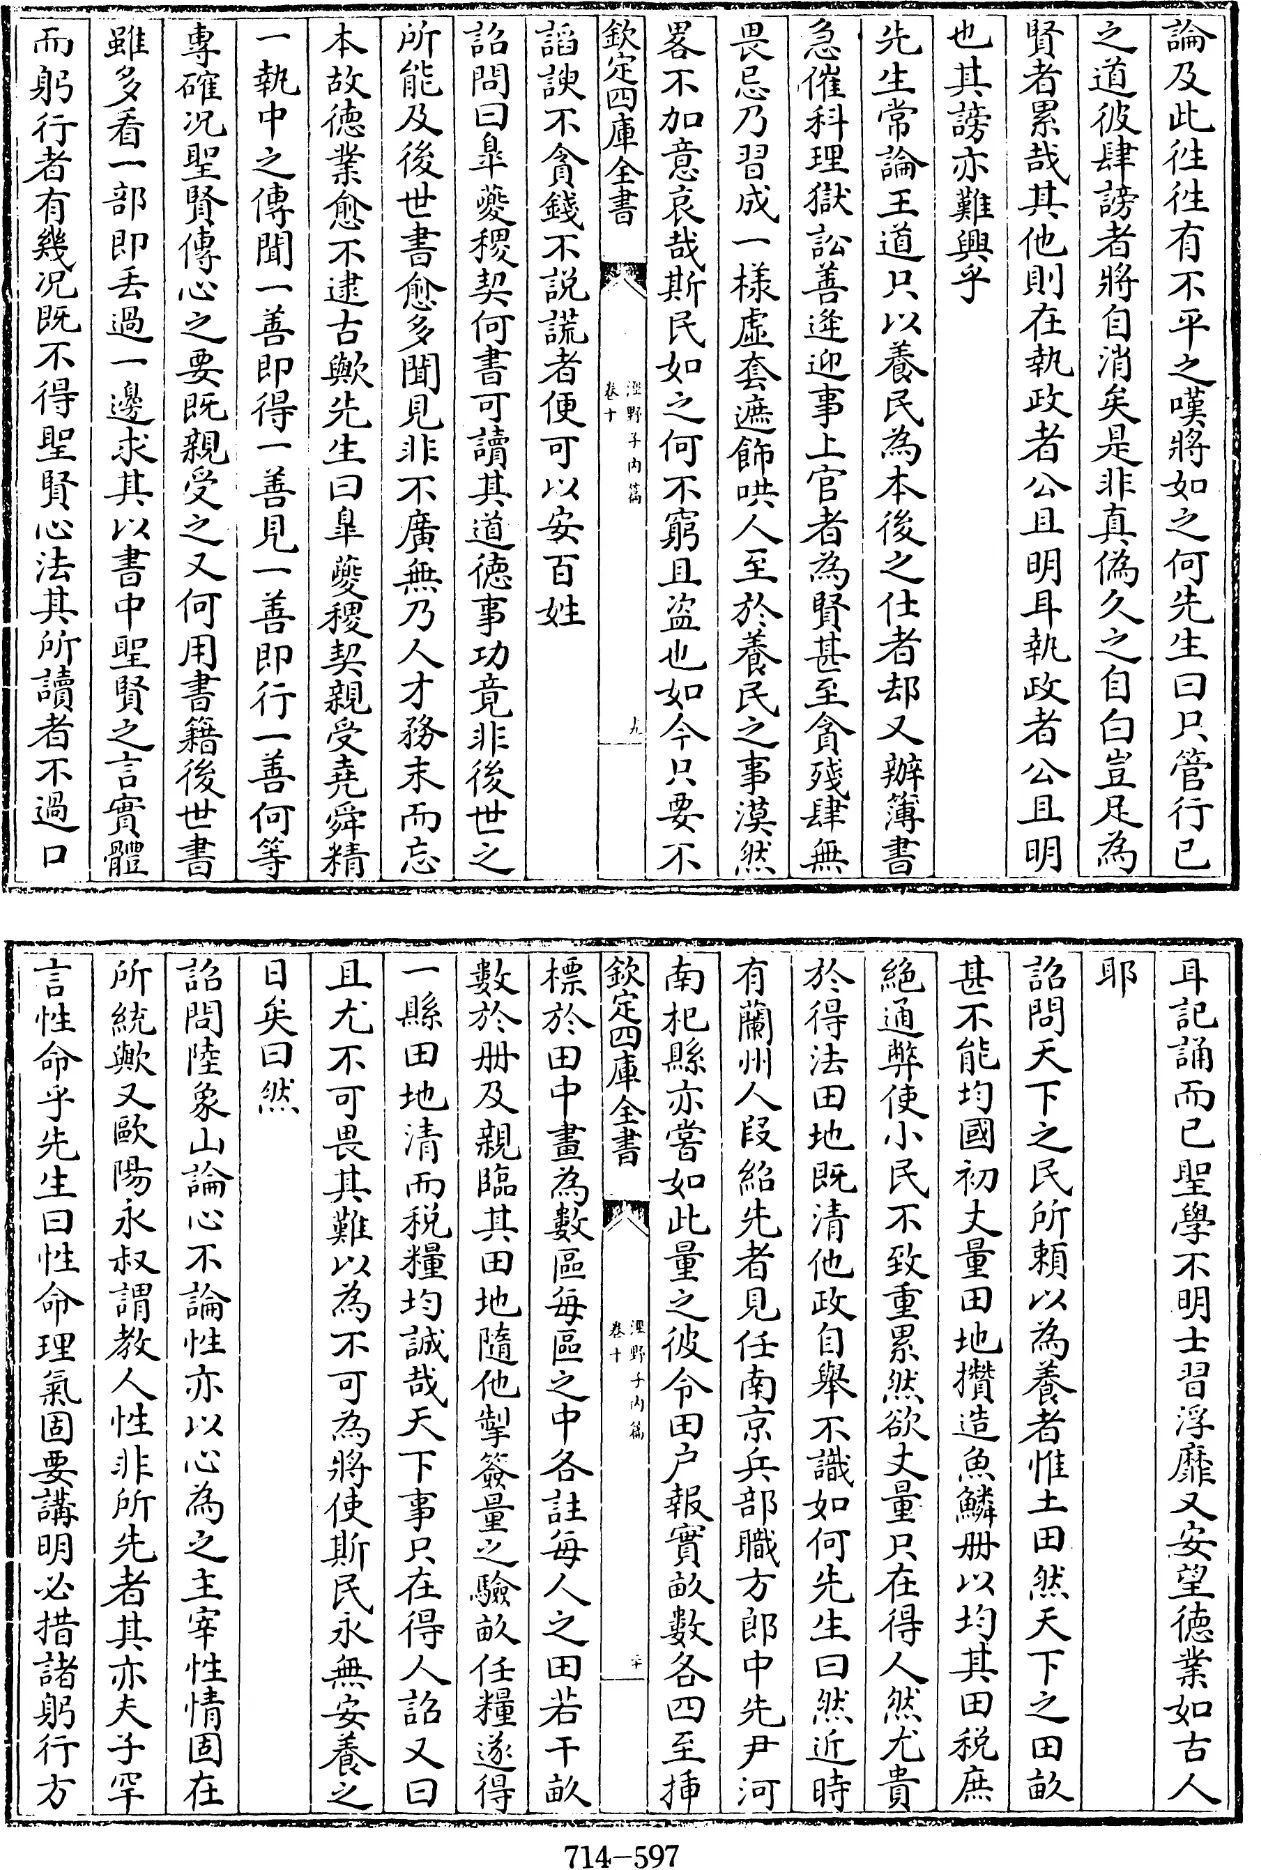 論及此徃徃有不平之嘆將如之何先生曰只管行已
之道彼肆謗者將自消矣是非真偽久之自白豈足為
賢者累哉其他則在執政者公且明耳執政者公且明
也其謗亦難興乎
先生常論王道只以養民為本後之仕者却又辦簿書
急催科理獄訟善逄迎事上官者為賢甚至貪殘肆無
畏忌乃習成一樣虛套遮飾哄人至於養民之事漠然
畧不加意哀哉斯民如之何不窮且盗也如今只要不
欽定四庫全書
涇野子内篇
卷十
九
謟諛不貪錢不説謊者便可以安百姓
詔問曰臯夔稷契何書可讀其道德事功竟非後世之
所能及後世書愈多聞見非不廣無乃人才務末而忘
本故德業愈不逮古歟先生曰臯夔稷契親受堯舜精
一執中之傳聞一善即得一善見一善即行一善何等
專確况聖賢傳心之要既親受之又何用書籍後世書
雖多看一部即丢過一邊求其以書中聖賢之言實體
而躬行者有幾况既不得聖賢心法其所讀者不過口
耳記誦而已聖學不明士習浮靡又安望德業如古人
耶
詔問天下之民所頼以為養者惟土田然天下之田畝
甚不能均國初丈量田地攢造魚鱗册以均其田税庶
絶通弊使小民不致重累然欲丈量只在得人然尤貴
於得法田地既清他政自舉不識如何先生曰然近時
有蘭州人段紹先者見任南京兵部職方郎中先尹河
南杞縣亦嘗如此量之彼令田户報實畝數各四至揷
欽定四庫全書
涇野子内篇
卷十
二十
標於田中畫為數區每區之中各註每人之田若干畝
數於册及親臨其田地隨他掣簽量之驗畝任糧遂得
一縣田地清而税糧均誠哉天下事只在得人詔又曰
且尤不可畏其難以為不可為將使斯民永無安養之
日矣曰然
詔問陸象山論心不論性亦以心為之主宰性情固在
所統歟又歐陽永叔謂教人性非所先者其亦夫子罕
言性命乎先生曰性命理氣固要講明必措諸躬行方
714-597